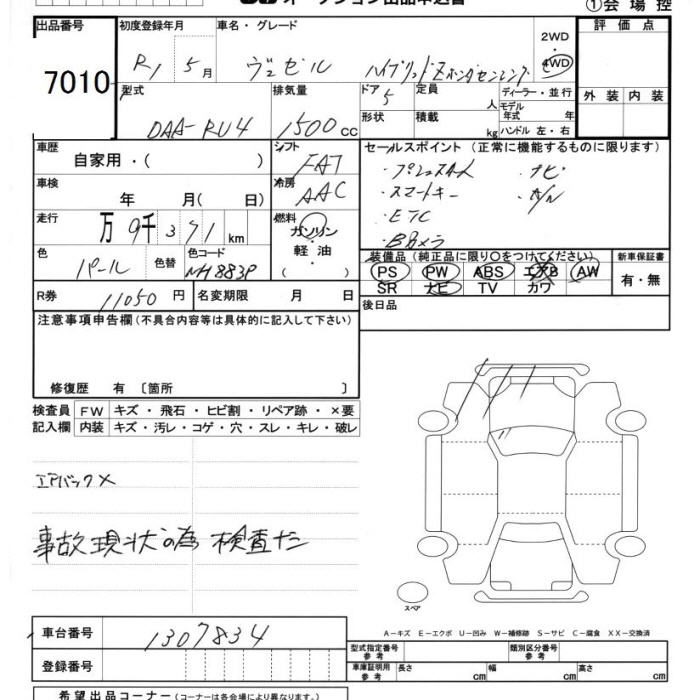 オークション出品申込書 ①会場控
出品番号 初度登録年月 車名・グレード 2WD 評価点
7010 R1 5月 ヴェゼル ハイブリッドZホンダセンシング 4WD
型式 排気量 ドア 5 定員 人 ディーラー・並行 外装 内装
DAA-RU4 1500cc 形状 積載 kg モデル年式 年
ハンドル 左・右
車歴 自家用・( ) シフト FAT セールスポイント(正常に機能するものに限ります)
車検 年 月(日) 冷房 AAC ・スマートキー ・ナビ
・ETC
走行 万 9千371km 燃料 ガソリン ・Bカメラ
軽油
( )
色 パール 色替 色コード NH883P 装備品(純正品に限り○をつけてください) 新車保証書
PS PW ABS エアB AW 有・無
SR ナビ TV カワ
R券 11050円 名変期限 月 日 後日品
注意事項申告欄(不具合内容等は具体的に記入して下さい)
修復歴 有〔箇所 〕
検査員 FW キズ・飛石・ヒビ割・リペア跡・×要
記入欄 内装 キズ・汚レ・コゲ・穴・スレ・キレ・破レ
エアバック×
事故現状の為 検査ナシ
スペア
車台番号 1307834 A-キズ E-エクボ U-凹み W-補修跡 S-サビ C-腐食 XX-交換済
登録番号 型式指定番号 参考 類別区分番号 参考
車庫証明用 参考 長さ cm 幅 cm 高さ cm
希望出品コーナー(コーナーは各会場により異なります。)